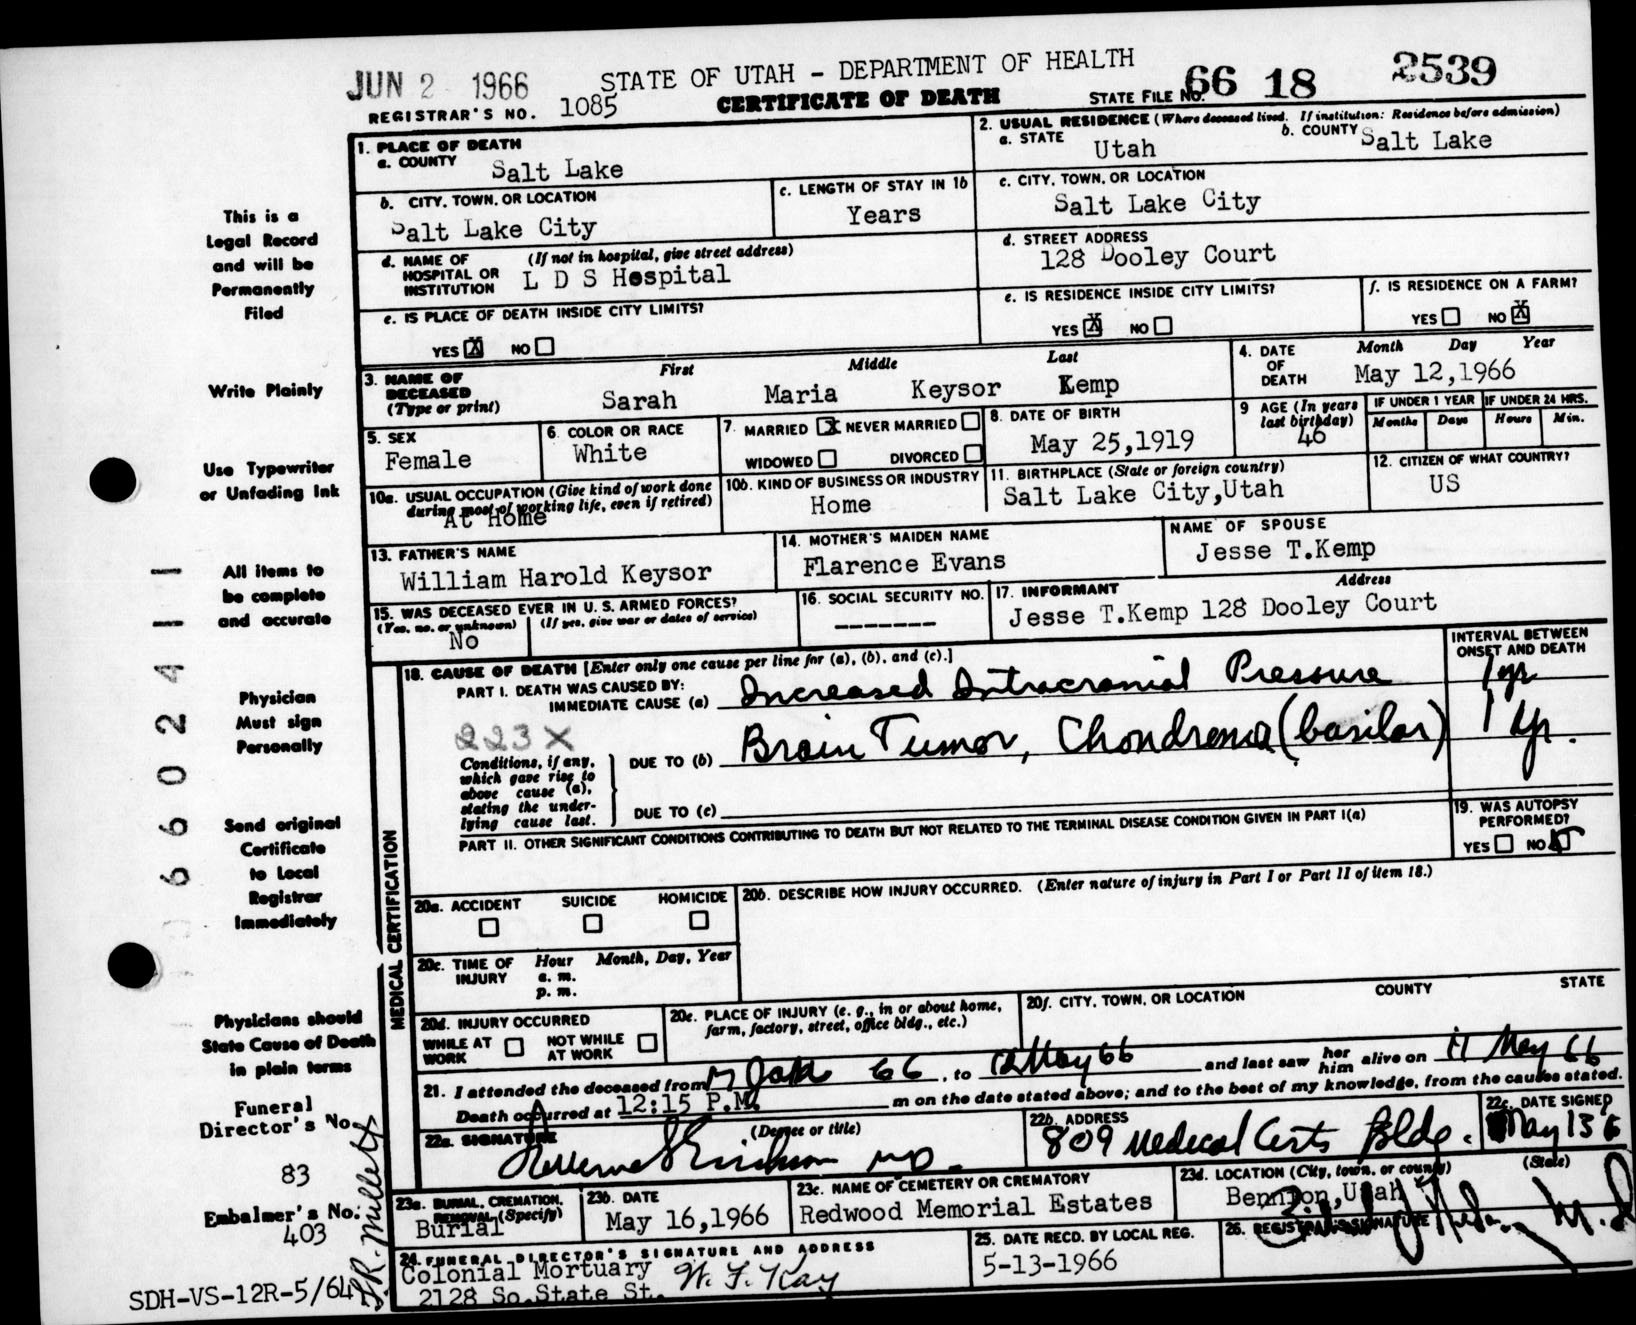 JUN 2 1966
STATE OF UTAH – DEPARTMENT OF HEALTH
66 18 2539
REGISTRAR'S NO. 1085
CERTIFICATE OF DEATH
STATE FILE NO.
1. PLACE OF DEATH
a. COUNTY Salt Lake
2. USUAL RESIDENCE (Where deceased lived. If institution: Residence before admission)
a. STATE Utah
b. COUNTY Salt Lake
b. CITY, TOWN, OR LOCATION
Salt Lake City
c. LENGTH OF STAY IN 1b
Years
c. CITY, TOWN, OR LOCATION
Salt Lake City
d. NAME OF HOSPITAL OR INSTITUTION (If not in hospital, give street address)
L D S Hospital
d. STREET ADDRESS
128 Dooley Court
e. IS PLACE OF DEATH INSIDE CITY LIMITS?
YES X NO
e. IS RESIDENCE INSIDE CITY LIMITS?
YES X NO
f. IS RESIDENCE ON A FARM?
YES NO X
3. NAME OF DECEASED (Type or print)
First Middle Last
Sarah Maria Keysor Kemp
4. DATE OF DEATH
Month Day Year
May 12,1966
5. SEX
Female
6. COLOR OR RACE
White
7. MARRIED X NEVER MARRIED
WIDOWED DIVORCED
8. DATE OF BIRTH
May 25,1919
9 AGE (In years last birthday)
46
IF UNDER 1 YEAR
Months Days
IF UNDER 24 HRS.
Hours Min.
10a. USUAL OCCUPATION (Give kind of work done during most of working life, even if retired)
At Home
10b. KIND OF BUSINESS OR INDUSTRY
Home
11. BIRTHPLACE (State or foreign country)
Salt Lake City,Utah
12. CITIZEN OF WHAT COUNTRY?
US
13. FATHER'S NAME
William Harold Keysor
14. MOTHER'S MAIDEN NAME
Flarence Evans
NAME OF SPOUSE
Jesse T.Kemp
15. WAS DECEASED EVER IN U. S. ARMED FORCES?
(Yes, no. or unknown) (If yes, give war or dates of service)
No
16. SOCIAL SECURITY NO.
-------
17. INFORMANT Address
Jesse T.Kemp 128 Dooley Court
18. CAUSE OF DEATH [Enter only one cause per line for (a), (b), and (c).]
INTERVAL BETWEEN ONSET AND DEATH
PART I. DEATH WAS CAUSED BY:
IMMEDIATE CAUSE (a) Increased Intracranial Pressure 1 yr
223X
Conditions, if any, which gave rise to above cause (a), stating the underlying cause last.
DUE TO (b) Brain Tumor, Chondroma (basilar) 1 yr.
DUE TO (c)
PART II. OTHER SIGNIFICANT CONDITIONS CONTRIBUTING TO DEATH BUT NOT RELATED TO THE TERMINAL DISEASE CONDITION GIVEN IN PART I(a)
19. WAS AUTOPSY PERFORMED?
YES NO
20a. ACCIDENT SUICIDE HOMICIDE
20b. DESCRIBE HOW INJURY OCCURRED. (Enter nature of injury in Part I or Part II of item 18.)
20c. TIME OF INJURY Hour Month, Day, Year
a. m.
p. m.
20d. INJURY OCCURRED
WHILE AT WORK NOT WHILE AT WORK
20e. PLACE OF INJURY (e. g., in or about home, farm, factory, street, office bldg., etc.)
20f. CITY, TOWN, OR LOCATION COUNTY STATE
21. I attended the deceased from 66, to 12 May 66 and last saw her him alive on 11 May 66
Death occurred at 12:15 P.M. m on the date stated above; and to the best of my knowledge, from the causes stated.
22a. SIGNATURE (Degree or title)
MD.
22b. ADDRESS
809 Medical Arts Bldg.
22c. DATE SIGNED
May 13 6
23a. BURIAL, CREMATION, REMOVAL (Specify)
Burial
23b. DATE
May 16,1966
23c. NAME OF CEMETERY OR CREMATORY
Redwood Memorial Estates
23d. LOCATION (City, town, or county) (State)
Bennion,Utah
24. FUNERAL DIRECTOR'S SIGNATURE AND ADDRESS
Colonial Mortuary W. F. Kay
2128 So.State St.
25. DATE RECD. BY LOCAL REG.
5-13-1966
26. REGISTRAR'S SIGNATURE
M.D
MEDICAL CERTIFICATION
This is a
Legal Record
and will be
Permanently
Filed
Write Plainly
Use Typewriter
or Unfading Ink
All items to
be complete
and accurate
Physician
Must sign
Personally
Send original
Certificate
to Local
Registrar
Immediately
Physicians should
State Cause of Death
in plain terms
Funeral
Director's No.
83
Embalmer's No:
403
SDH-VS-12R-5/64